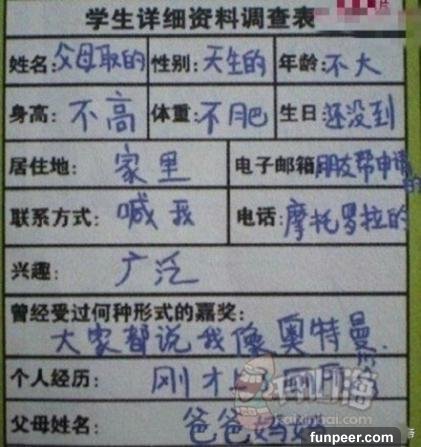 片
学生详细资料调查表
姓名:父母取的 性别:天生的 年龄:不大
身高:不高 体重:不肥 生日:还没到
居住地:家里 电子邮箱:朋友帮申请的
联系方式:喊我 电话:摩托罗拉的
兴趣:广泛
曾经受过何种形式的嘉奖:
大家都说我像奥特曼.
个人经历:刚才
父母姓名:爸爸妈妈
taixinhai.com
funpeer.com